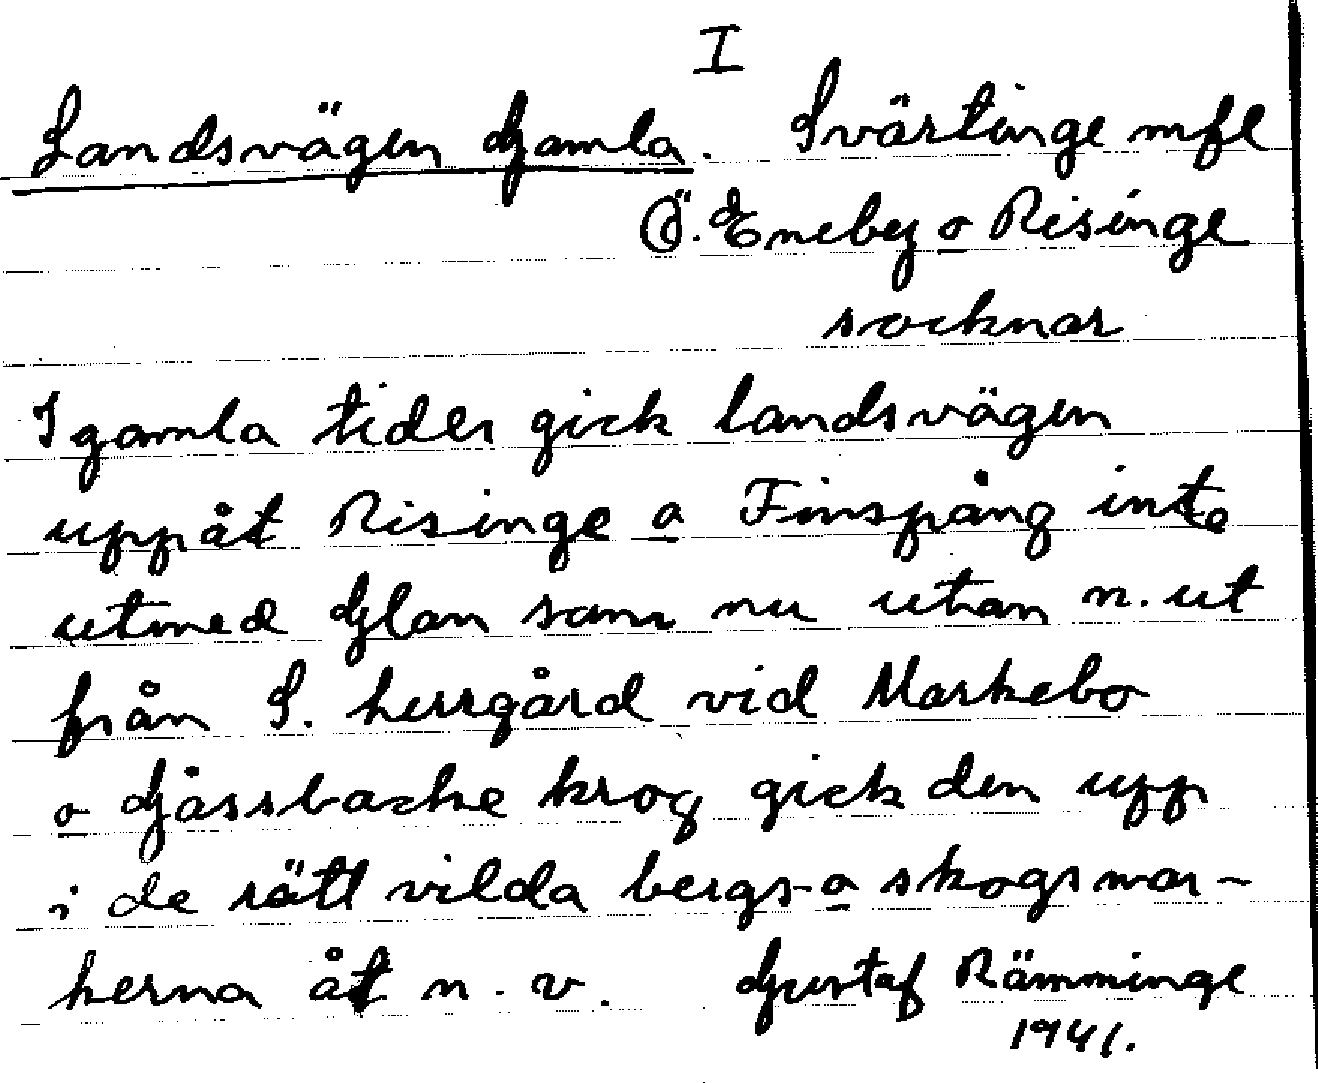 I
Landsvägen Gamla. Svärtinge mfl
Ö. Eneby o Risinge
socknar
I gamla tider gick landsvägen
uppåt Risinge o Finspång inte
utmed Glan som nu utan n. ut
från S. herrgård vid Markebo
o Gåssbacke krog gick den upp
i de rätt vilda bergs- o skogsmar-
kerna åt n. v. Gustaf Rämminge
1941.